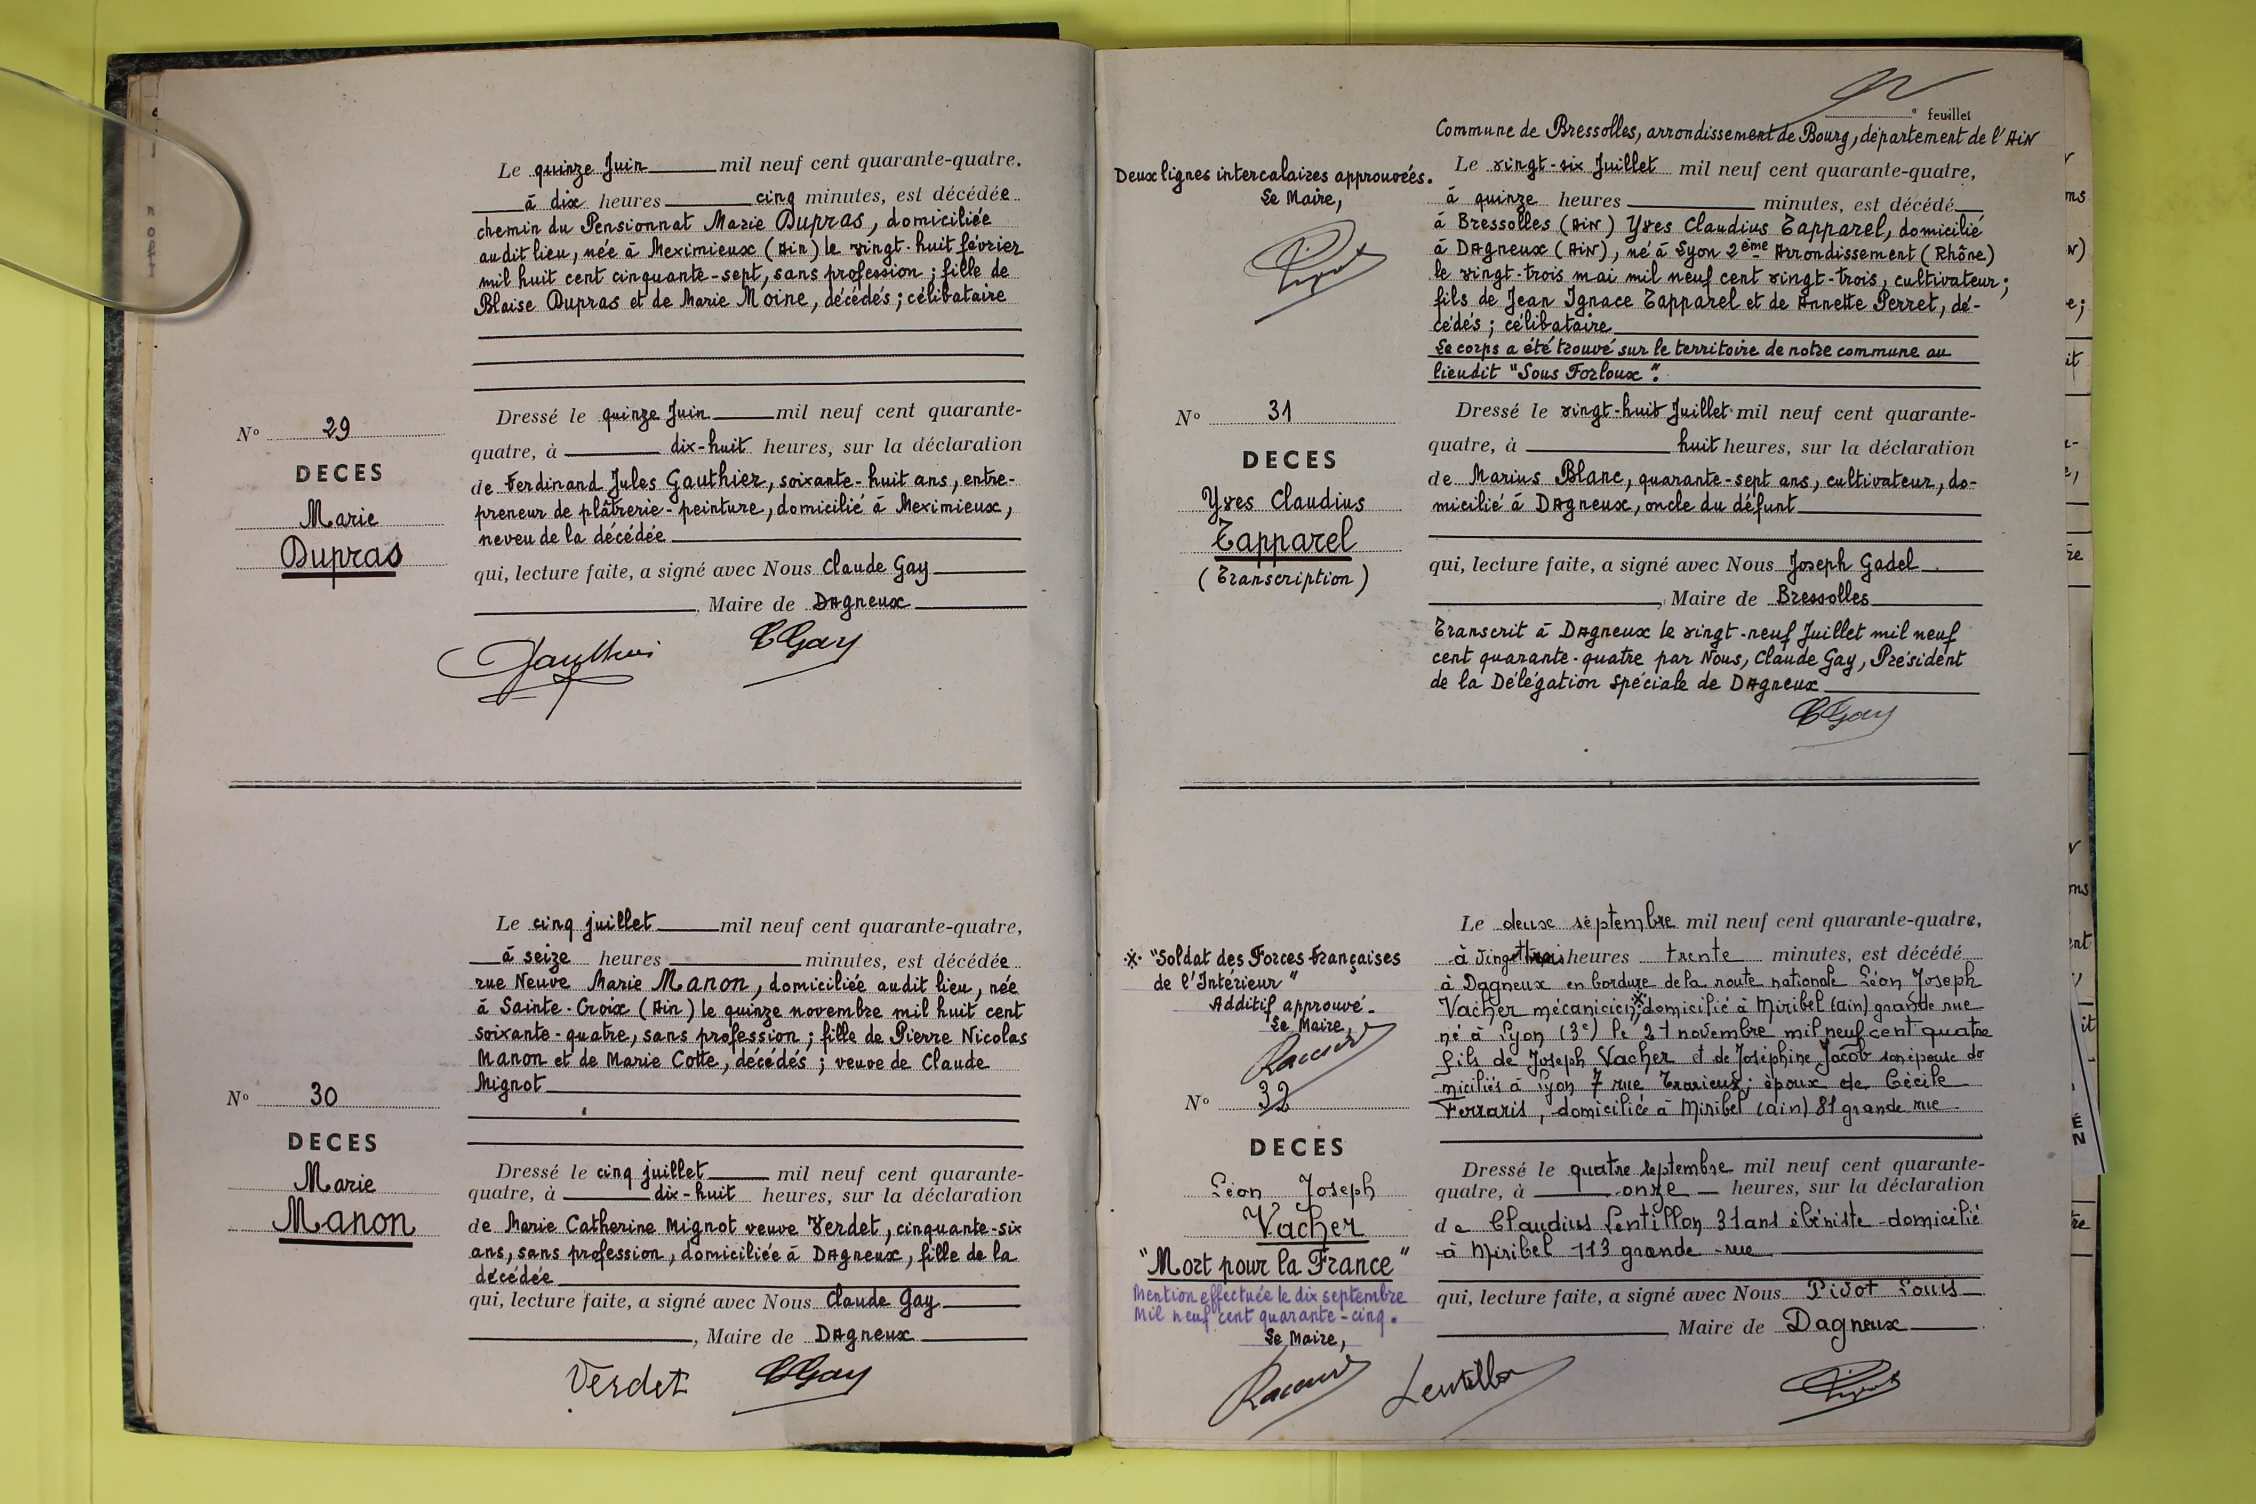 Le quinze Juin mil neuf cent quarante-quatre.
à dix heures cinq minutes, est décédée
chemin du Pensionnat Marie Dupras, domiciliée
audit lieu, née à Meximieux (Ain) le vingt-huit février
mil huit cent cinquante-sept, sans profession ; fille de
Blaise Dupras et de Marie Moine, décédés ; célibataire
Dressé le quinze Juin mil neuf cent quarante-
quatre, à dix-huit heures, sur la déclaration
de Ferdinand Jules Gauthier, soixante-huit ans, entre-
preneur de plâtrerie-peinture, domicilié à Meximieux,
neveu de la décédée
qui, lecture faite, a signé avec Nous Claude Gay
, Maire de Dagneux
CGay
N° 29
DECES
Marie
Dupras
Le cinq juillet mil neuf cent quarante-quatre,
à seize heures minutes, est décédée
rue Neuve Marie Manon, domiciliée audit lieu, née
à Sainte-Croix (Ain) le quinze novembre mil huit cent
soixante-quatre, sans profession ; fille de Pierre Nicolas
Manon et de Marie Cotte, décédés ; veuve de Claude
Mignot
N° 30
DECES
Marie
Manon
Dressé le cinq juillet mil neuf cent quarante-
quatre, à dix-huit heures, sur la déclaration
de Marie Catherine Mignot veuve Verdet, cinquante-six
ans, sans profession, domiciliée à Dagneux, fille de la
décédée
qui, lecture faite, a signé avec Nous Claude Gay
, Maire de Dagneux
Verdet CGay
° feuillet
Commune de Bressolles, arrondissement de Bourg, département de l'Ain
Deux lignes intercalaires approuvées.
Le Maire,
Le vingt-six Juillet mil neuf cent quarante-quatre,
à quinze heures minutes, est décédé
à Bressolles (Ain) Yves Claudius Tapparel, domicilié
à Dagneux (Ain), né à Lyon 2ème Arrondissement (Rhône)
le vingt-trois mai mil neuf cent vingt-trois, cultivateur ;
fils de Jean Ignace Tapparel et de Annette Perret, dé-
cédés ; célibataire
Le corps a été trouvé sur le territoire de notre commune au
lieudit "Sous Forloux".
N° 31
DECES
Yves Claudius
Tapparel
(Transcription)
Dressé le vingt-huit Juillet mil neuf cent quarante-
quatre, à huit heures, sur la déclaration
de Marius Blanc, quarante-sept ans, cultivateur, do-
micilié à Dagneux, oncle du défunt
qui, lecture faite, a signé avec Nous Joseph Gadel
, Maire de Bressolles
Transcrit à Dagneux le vingt-neuf Juillet mil neuf
cent quarante-quatre par Nous, Claude Gay, Président
de la Délégation Spéciale de Dagneux
CGay
Le deux septembre mil neuf cent quarante-quatre,
à vingt trois heures trente minutes, est décédé
à Dagneux en bordure de la route nationale Léon Joseph
Vacher mécanicien ※ domicilié à Miribel (ain) grande rue
né à Lyon (3e) le 21 novembre mil neuf cent quatre
fils de Joseph Vacher et de Joséphine Jacob son épouse do
miciliés à Lyon 7 rue Trarieux ; époux de Cécile
Ferraris, domiciliée à Miribel (ain) 81 grande rue
※ "Soldat des Forces françaises
de l'Intérieur"
Additif approuvé.
Le Maire,
N° 32
DECES
Léon Joseph
Vacher
"Mort pour la France"
Mention effectuée le dix septembre
Mil neuf cent quarante-cinq.
Le Maire,
Dressé le quatre septembre mil neuf cent quarante-
quatre, à onze heures, sur la déclaration
de Claudius Lentillon 31 ans ébéniste domicilié
à Miribel 113 grande rue
qui, lecture faite, a signé avec Nous Pivot Louis
, Maire de Dagneux